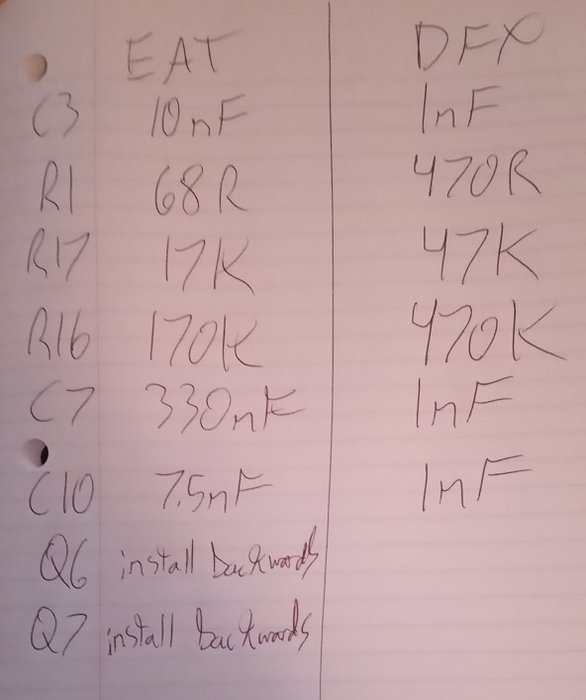 EAT DFX
C3 10nF 1nF
R1 68R 470R
R17 17K 47K
R16 170K 470K
C7 330nF 1nF
C10 7.5nF 1nF
Q6 install backwards
Q7 install backwards